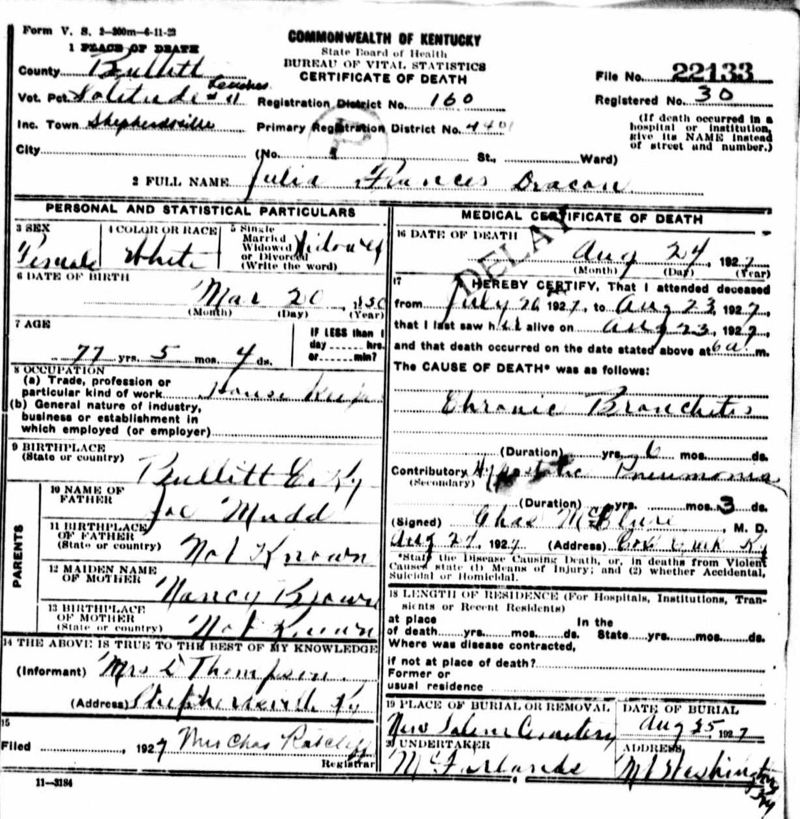 Form V. S. 2-200m-6-11-23
COMMONWEALTH OF KENTUCKY
State Board of Health
BUREAU OF VITAL STATISTICS
CERTIFICATE OF DEATH
1 PLACE OF DEATH
County Bullitt
File No. 22133
Vot. Pct. Solitude Leaches # 11
Registration District No. 160
Registered No. 30
Inc. Town Shepherdsville
Primary Registration District No. 4401
(If death occurred in a hospital or institution, give its NAME instead of street and number.)
City (No. St., Ward)
2 FULL NAME Julia Frances Deacon
PERSONAL AND STATISTICAL PARTICULARS
3 SEX
Female
4 COLOR OR RACE
White
5 Single
Married
Widowed
or Divorced
(Write the word)
Widowed
6 DATE OF BIRTH
Mar 20 1850
(Month) (Day) (Year)
7 AGE
77 yrs. 5 mos. 4 ds.
IF LESS than 1
day hrs.
or min?
8 OCCUPATION
(a) Trade, profession or
particular kind of work House Keeper
(b) General nature of industry,
business or establishment in
which employed (or employer)
9 BIRTHPLACE
(State or country)
Bullitt Co Ky
PARENTS
10 NAME OF
FATHER
Joe Mudd
11 BIRTHPLACE
OF FATHER
(State or country)
Not Known
12 MAIDEN NAME
OF MOTHER
Nancy Brown
13 BIRTHPLACE
OF MOTHER
(State or country)
Not Known
14 THE ABOVE IS TRUE TO THE BEST OF MY KNOWLEDGE
(Informant) Mrs Thompson
(Address) Shepherdsville Ky
15
Filed , 1927 Mrs Chas Ratcliff
Registrar
11-3184
MEDICAL CERTIFICATE OF DEATH
DELAY
16 DATE OF DEATH
Aug 24, 1927
(Month) (Day) (Year)
17 I HEREBY CERTIFY, That I attended deceased
from July 26, 1927, to Aug 23, 1927
that I last saw her alive on Aug 23, 1927
and that death occurred on the date stated above at 6 a m.
The CAUSE OF DEATH* was as follows:
Chronic Bronchitis
(Duration) yrs. 6 mos. ds.
Contributory Hypostatic Pneumonia
(Secondary)
(Duration) yrs. mos. 3 ds.
(Signed) Chas McClure, M. D.
Aug 27, 1927 (Address) Cox Creek Ky
*State the Disease Causing Death, or, in deaths from Violent
Causes state (1) Means of Injury; and (2) whether Accidental,
Suicidal or Homicidal.
18 LENGTH OF RESIDENCE (For Hospitals, Institutions, Transients or Recent Residents)
at place In the
of death yrs. mos. ds. State yrs. mos. ds.
Where was disease contracted,
if not at place of death?
Former or
usual residence
19 PLACE OF BURIAL OR REMOVAL
New Salem Cemetery
DATE OF BURIAL
Aug 25 1927
20 UNDERTAKER
McFarlands
ADDRESS
Mt Washington
Ky